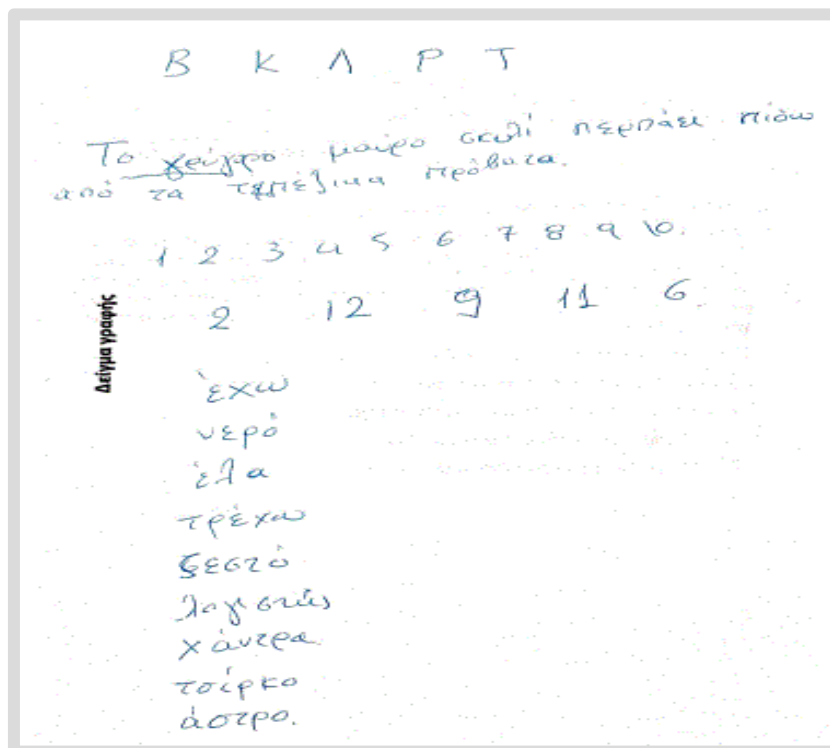 Β Κ Λ Ρ Τ
Το γρήγορο μαύρο σκυλί περπάει πίσω
από τα τεμπέλικα πρόβατα.
1 2 3 4 5 6 7 8 9 10.
2 12 9 11 6
Δείγμα γραφής
έχω
νερό
έλα
τρέχω
ζεστό
λογιστής
χάντρα
τσίρκο
άστρο.